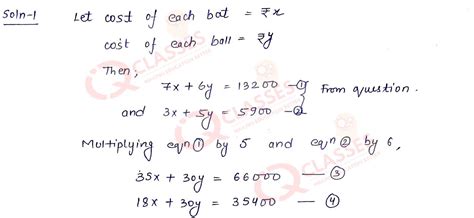 Soln-1 Let cost of each bat = ₹x
cost of each ball = ₹y
Then;
7x + 6y = 13200 — ①
and 3x + 5y = 5900 — ② } From question.
Multiplying eqn ① by 5 and eqn ② by 6,
35x + 30y = 66000 — ③
18x + 30y = 35400 — ④